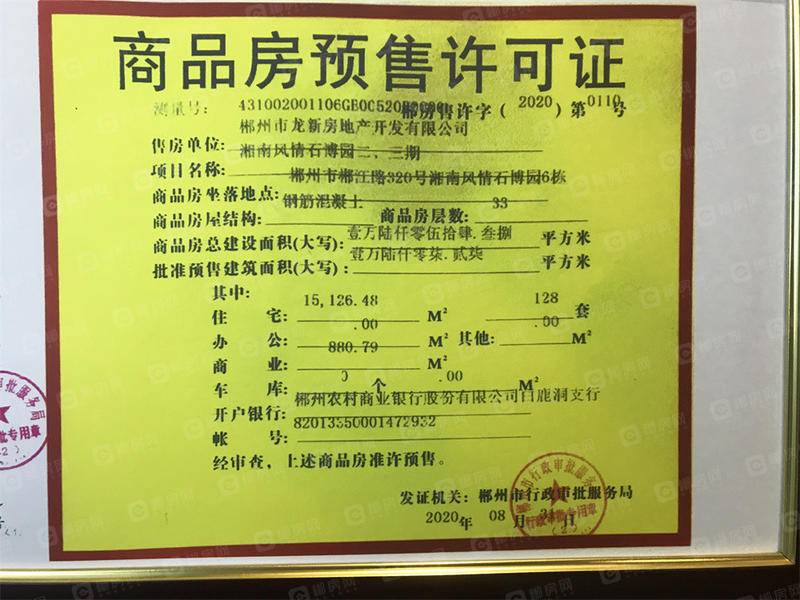 商品房预售许可证
测量号: 431002001106GB0C520
郴房售许字( 2020 )第0110号
售房单位: 郴州市龙新房地产开发有限公司
项目名称: 湘南风情石博园二、三期
商品房坐落地点: 郴州市郴江路320号湘南风情石博园6栋
商品房屋结构: 钢筋混凝土 商品房层数: 33
商品房总建设面积(大写): 壹万陆仟零伍拾肆.叁捌 平方米
批准预售建筑面积(大写): 壹万陆仟零柒.贰柒 平方米
其中:
住 宅: 15,126.48 M² 128 套
办 公: .00 M² 其他: .00 M²
商 业: 880.79 M²
车 库: 0 个 .00 M²
开户银行: 郴州农村商业银行股份有限公司白鹿洞支行
帐 号: 82013350001472932
经审查,上述商品房准许预售。
发证机关: 郴州市行政审批服务局
2020年 08月 31日
市行政审批服务
行政审批专用章
(2)
审批服务局
批专用章
郴房网